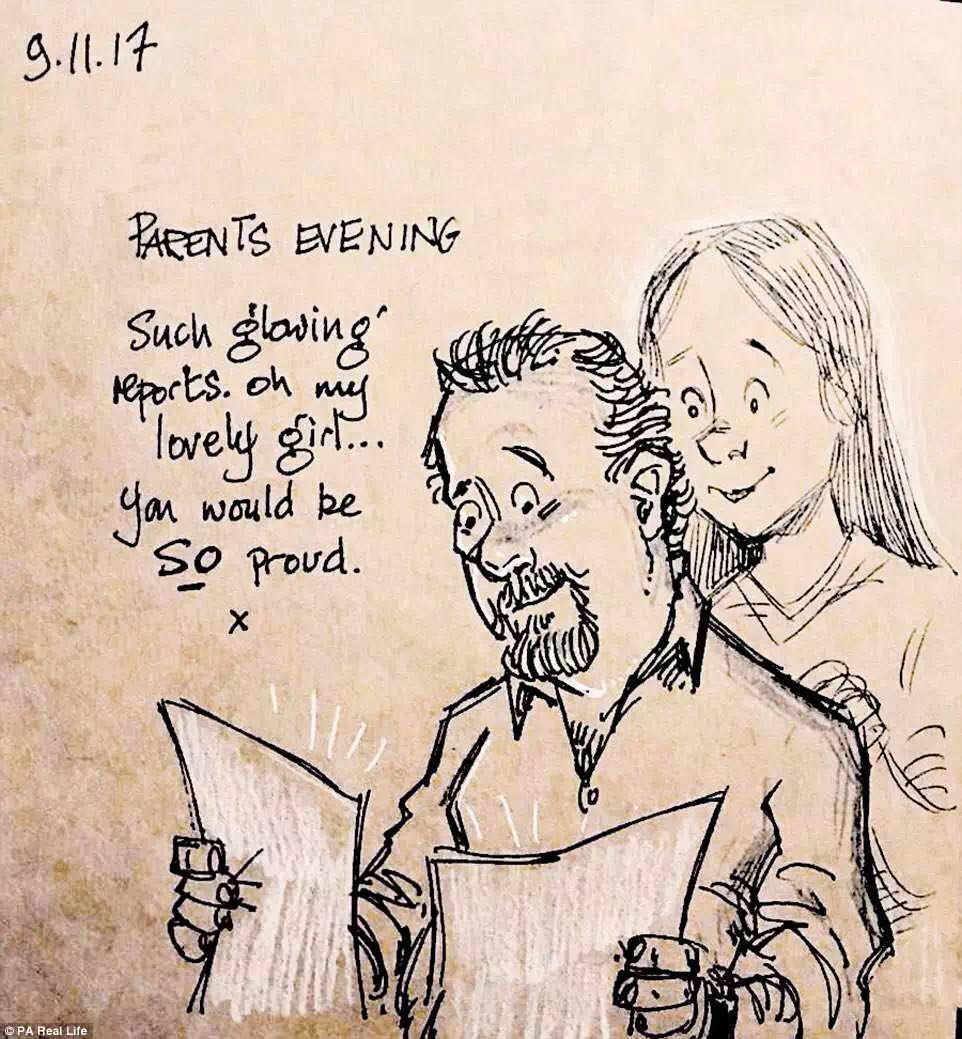 9.11.17
PARENTS EVENING
Such glowing
reports. oh my
lovely girl...
you would be
SO proud.
x
© PA Real Life